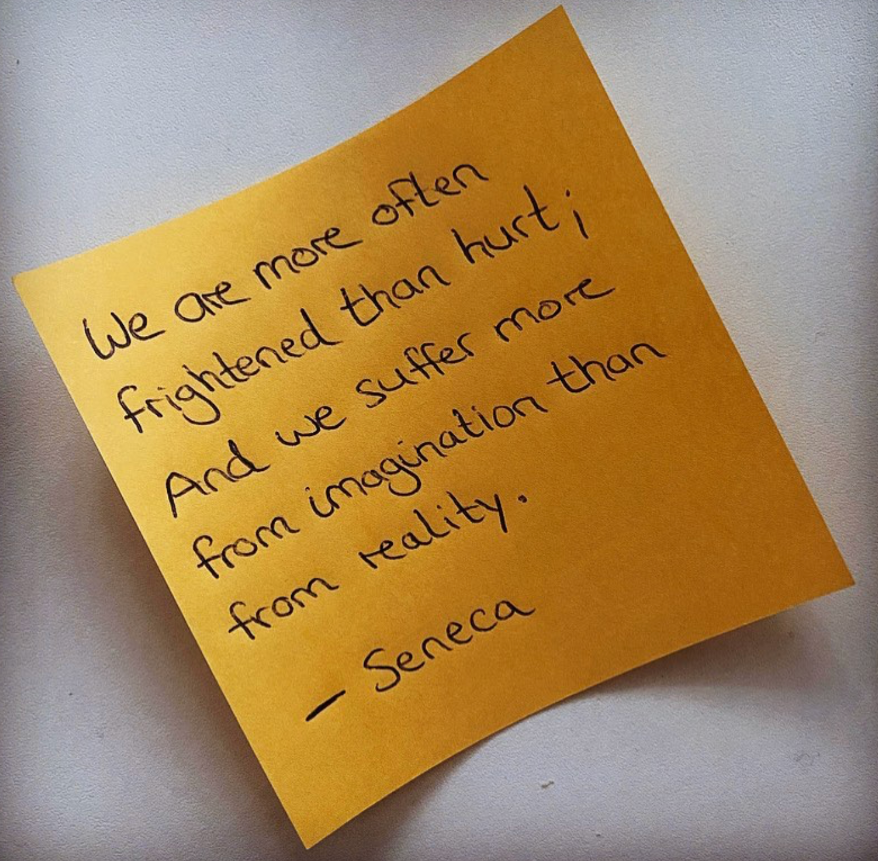 We are more often
frightened than hurt;
And we suffer more
from imagination than
from reality.
— Seneca